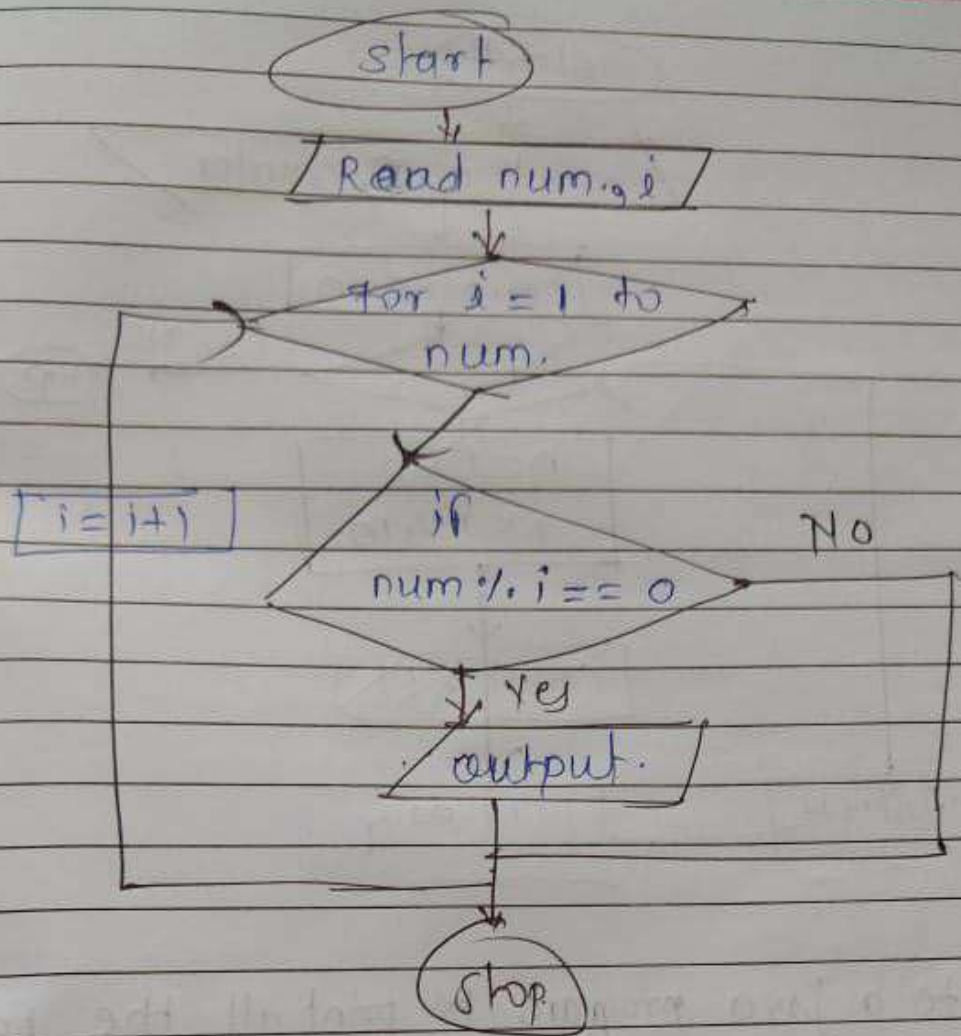 start
Read num., i
for i = 1 to
num.
i = i+1
if
num % i == 0
No
Yes
output.
Stop